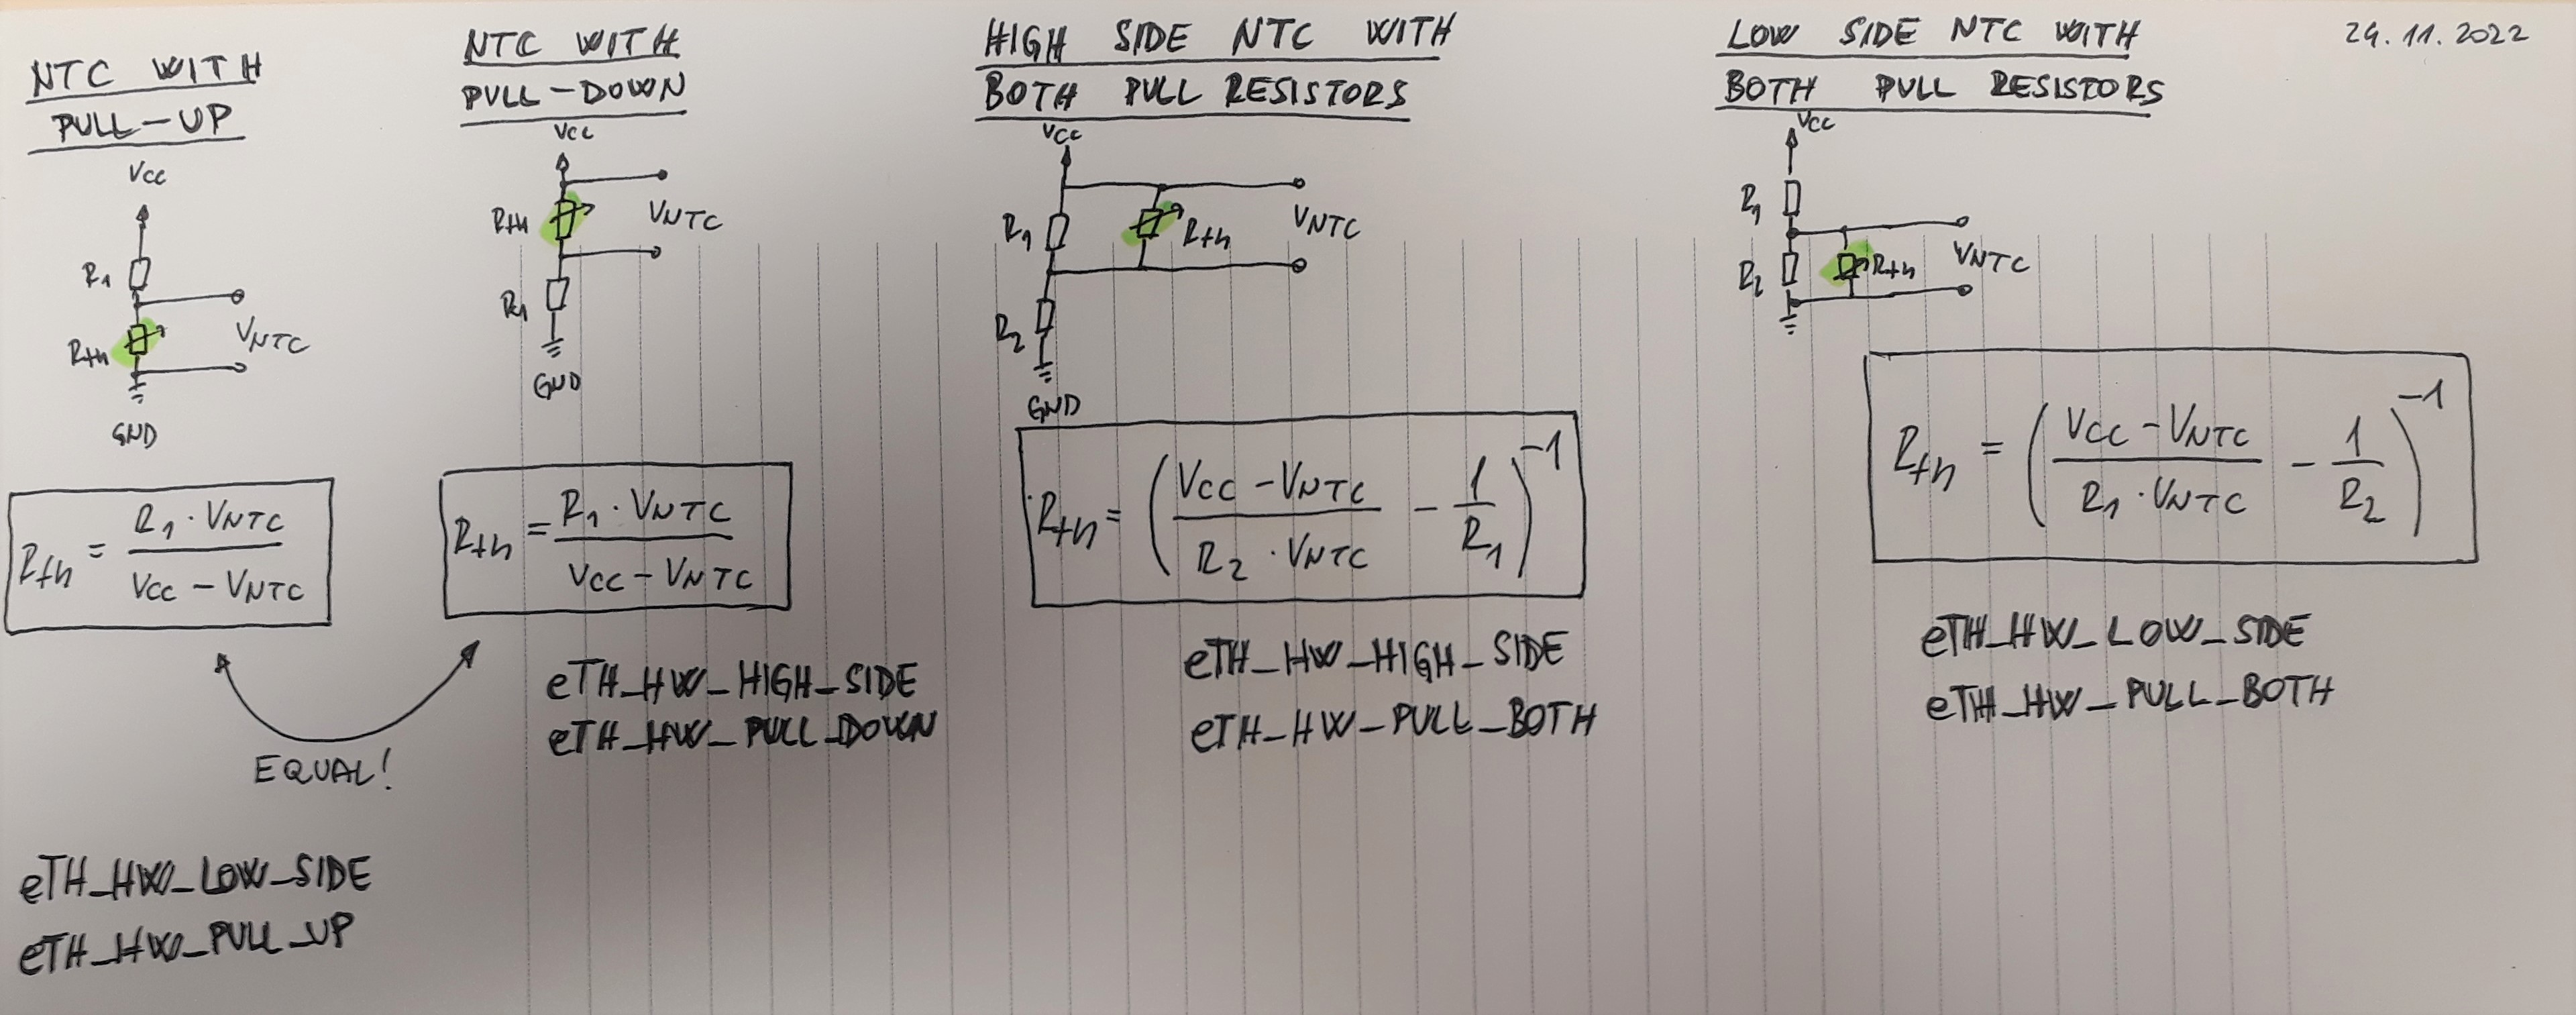 NTC WITH
PULL-UP
Vcc
R1
Rth
VNTC
GND
Rth = R1 · VNTC / VCC - VNTC
EQUAL!
eTH_HW_LOW_SIDE
eTH_HW_PULL_UP
NTC WITH
PULL-DOWN
VCC
Rth
VNTC
R1
GND
Rth = R1 · VNTC / VCC - VNTC
eTH_HW_HIGH_SIDE
eTH_HW_PULL_DOWN
HIGH SIDE NTC WITH
BOTH PULL RESISTORS
VCC
R1
Rth
VNTC
R2
GND
Rth = ( VCC - VNTC / R2 · VNTC - 1 / R1 )^-1
eTH_HW_HIGH_SIDE
eTH_HW_PULL_BOTH
LOW SIDE NTC WITH
BOTH PULL RESISTORS
VCC
R1
R2
Rth
VNTC
Rth = ( VCC - VNTC / R1 · VNTC - 1 / R2 )^-1
eTH_HW_LOW_SIDE
eTH_HW_PULL_BOTH
29.11.2022